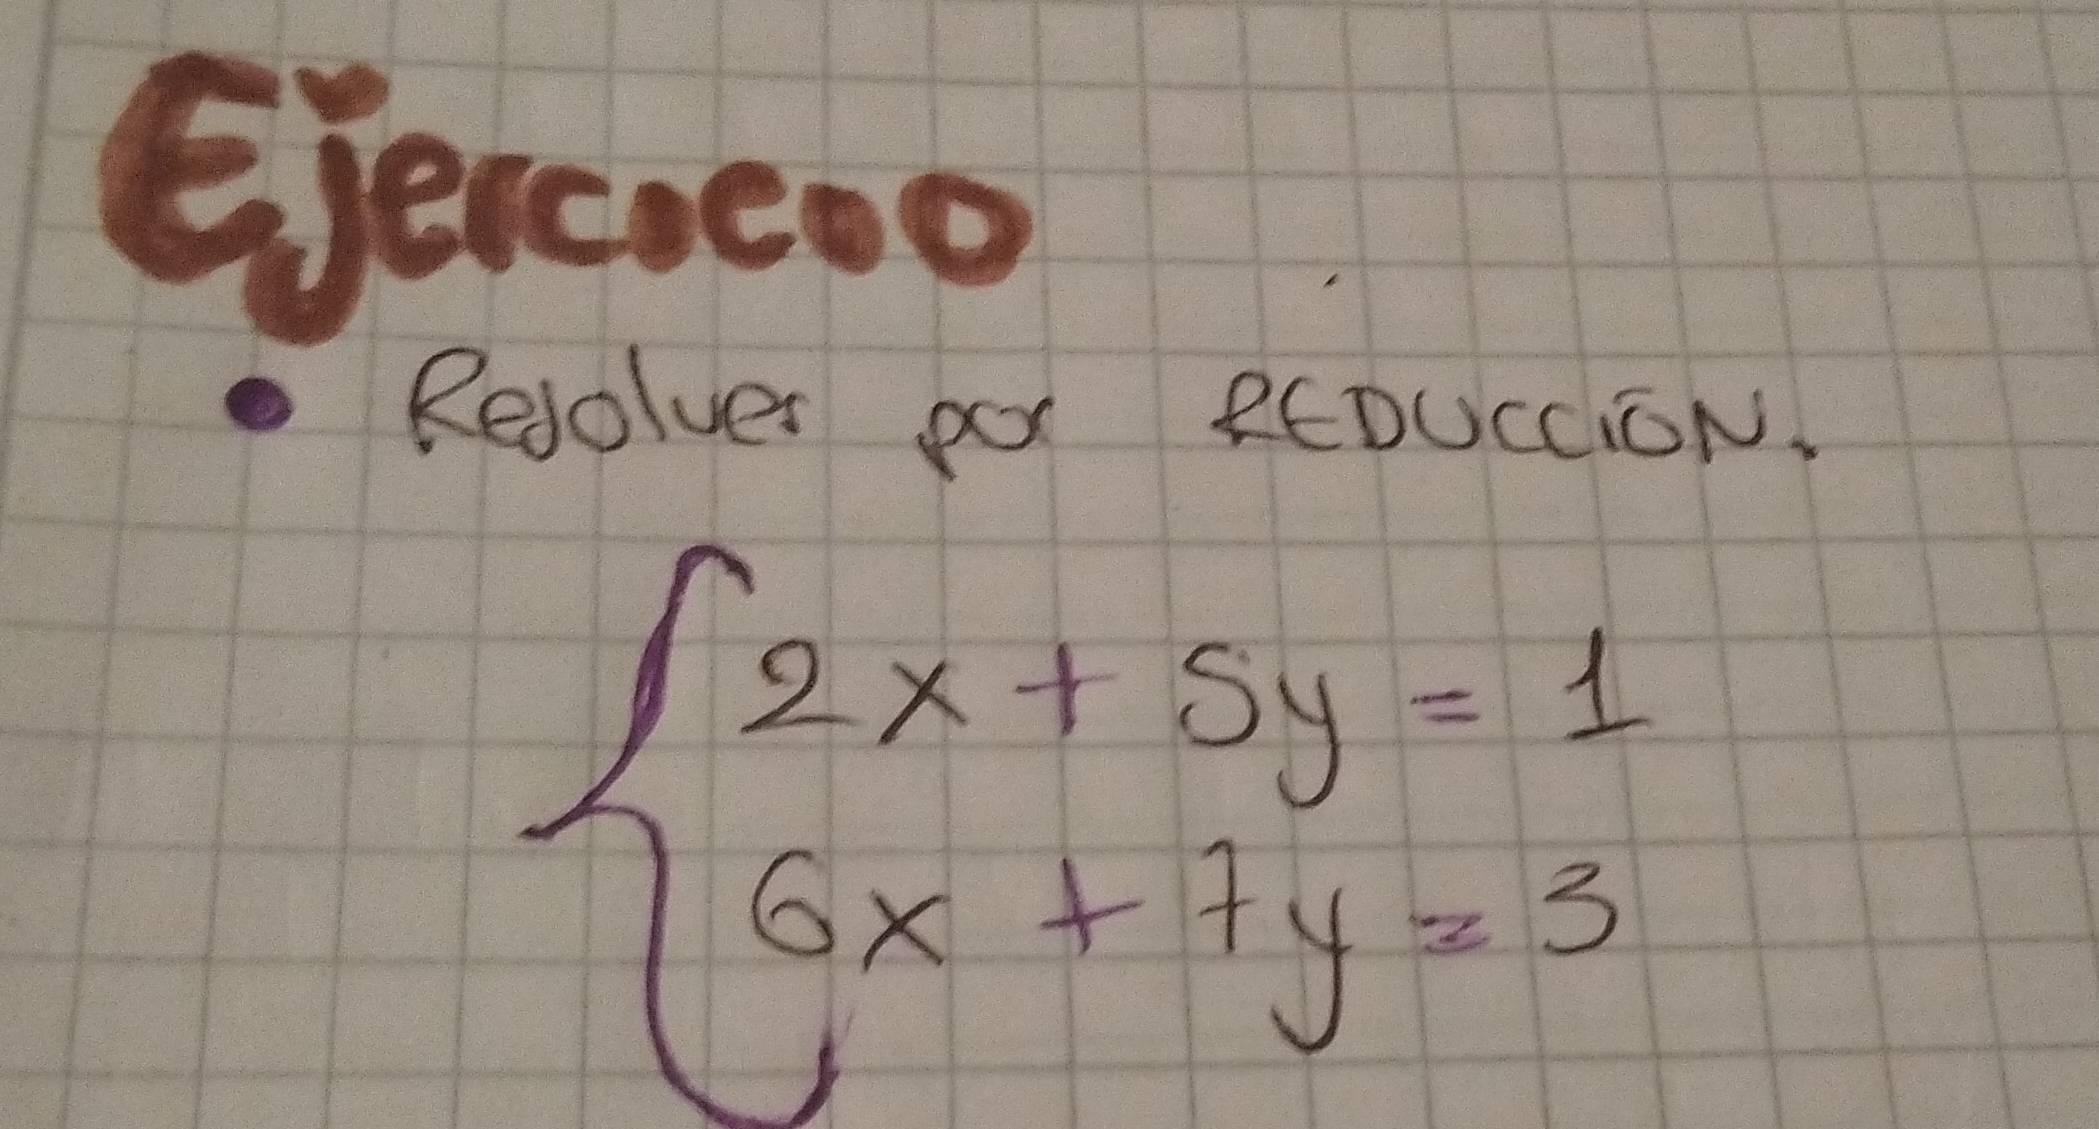 Ejercicio
• Resolver por REDUCCIÓN.
2x + 5y = 1
6x + 7y = 3